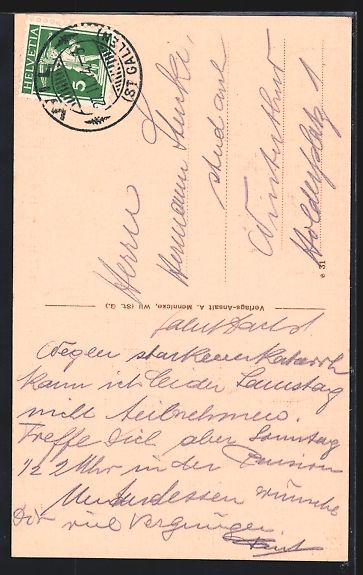 HELVETIA
5
(ST. GALLEN)
Herrn
Hermann
stud
Winterthur
Verlags-Anstalt A. Mennicke, Wil (St. G.)
e 31
Wegen starkem Katarrh
kann ich leider Samstag
nicht teilnehmen.
Treffe Dich aber Sonntag
1/2 2 Uhr in der Pension
Unterdessen wünsche
Dir viel Vergnügen.